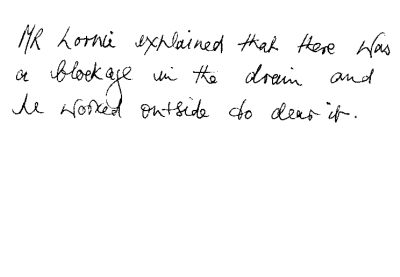 MR Lornie explained that there was
a blockage in the drain and
he worked outside to clear it.